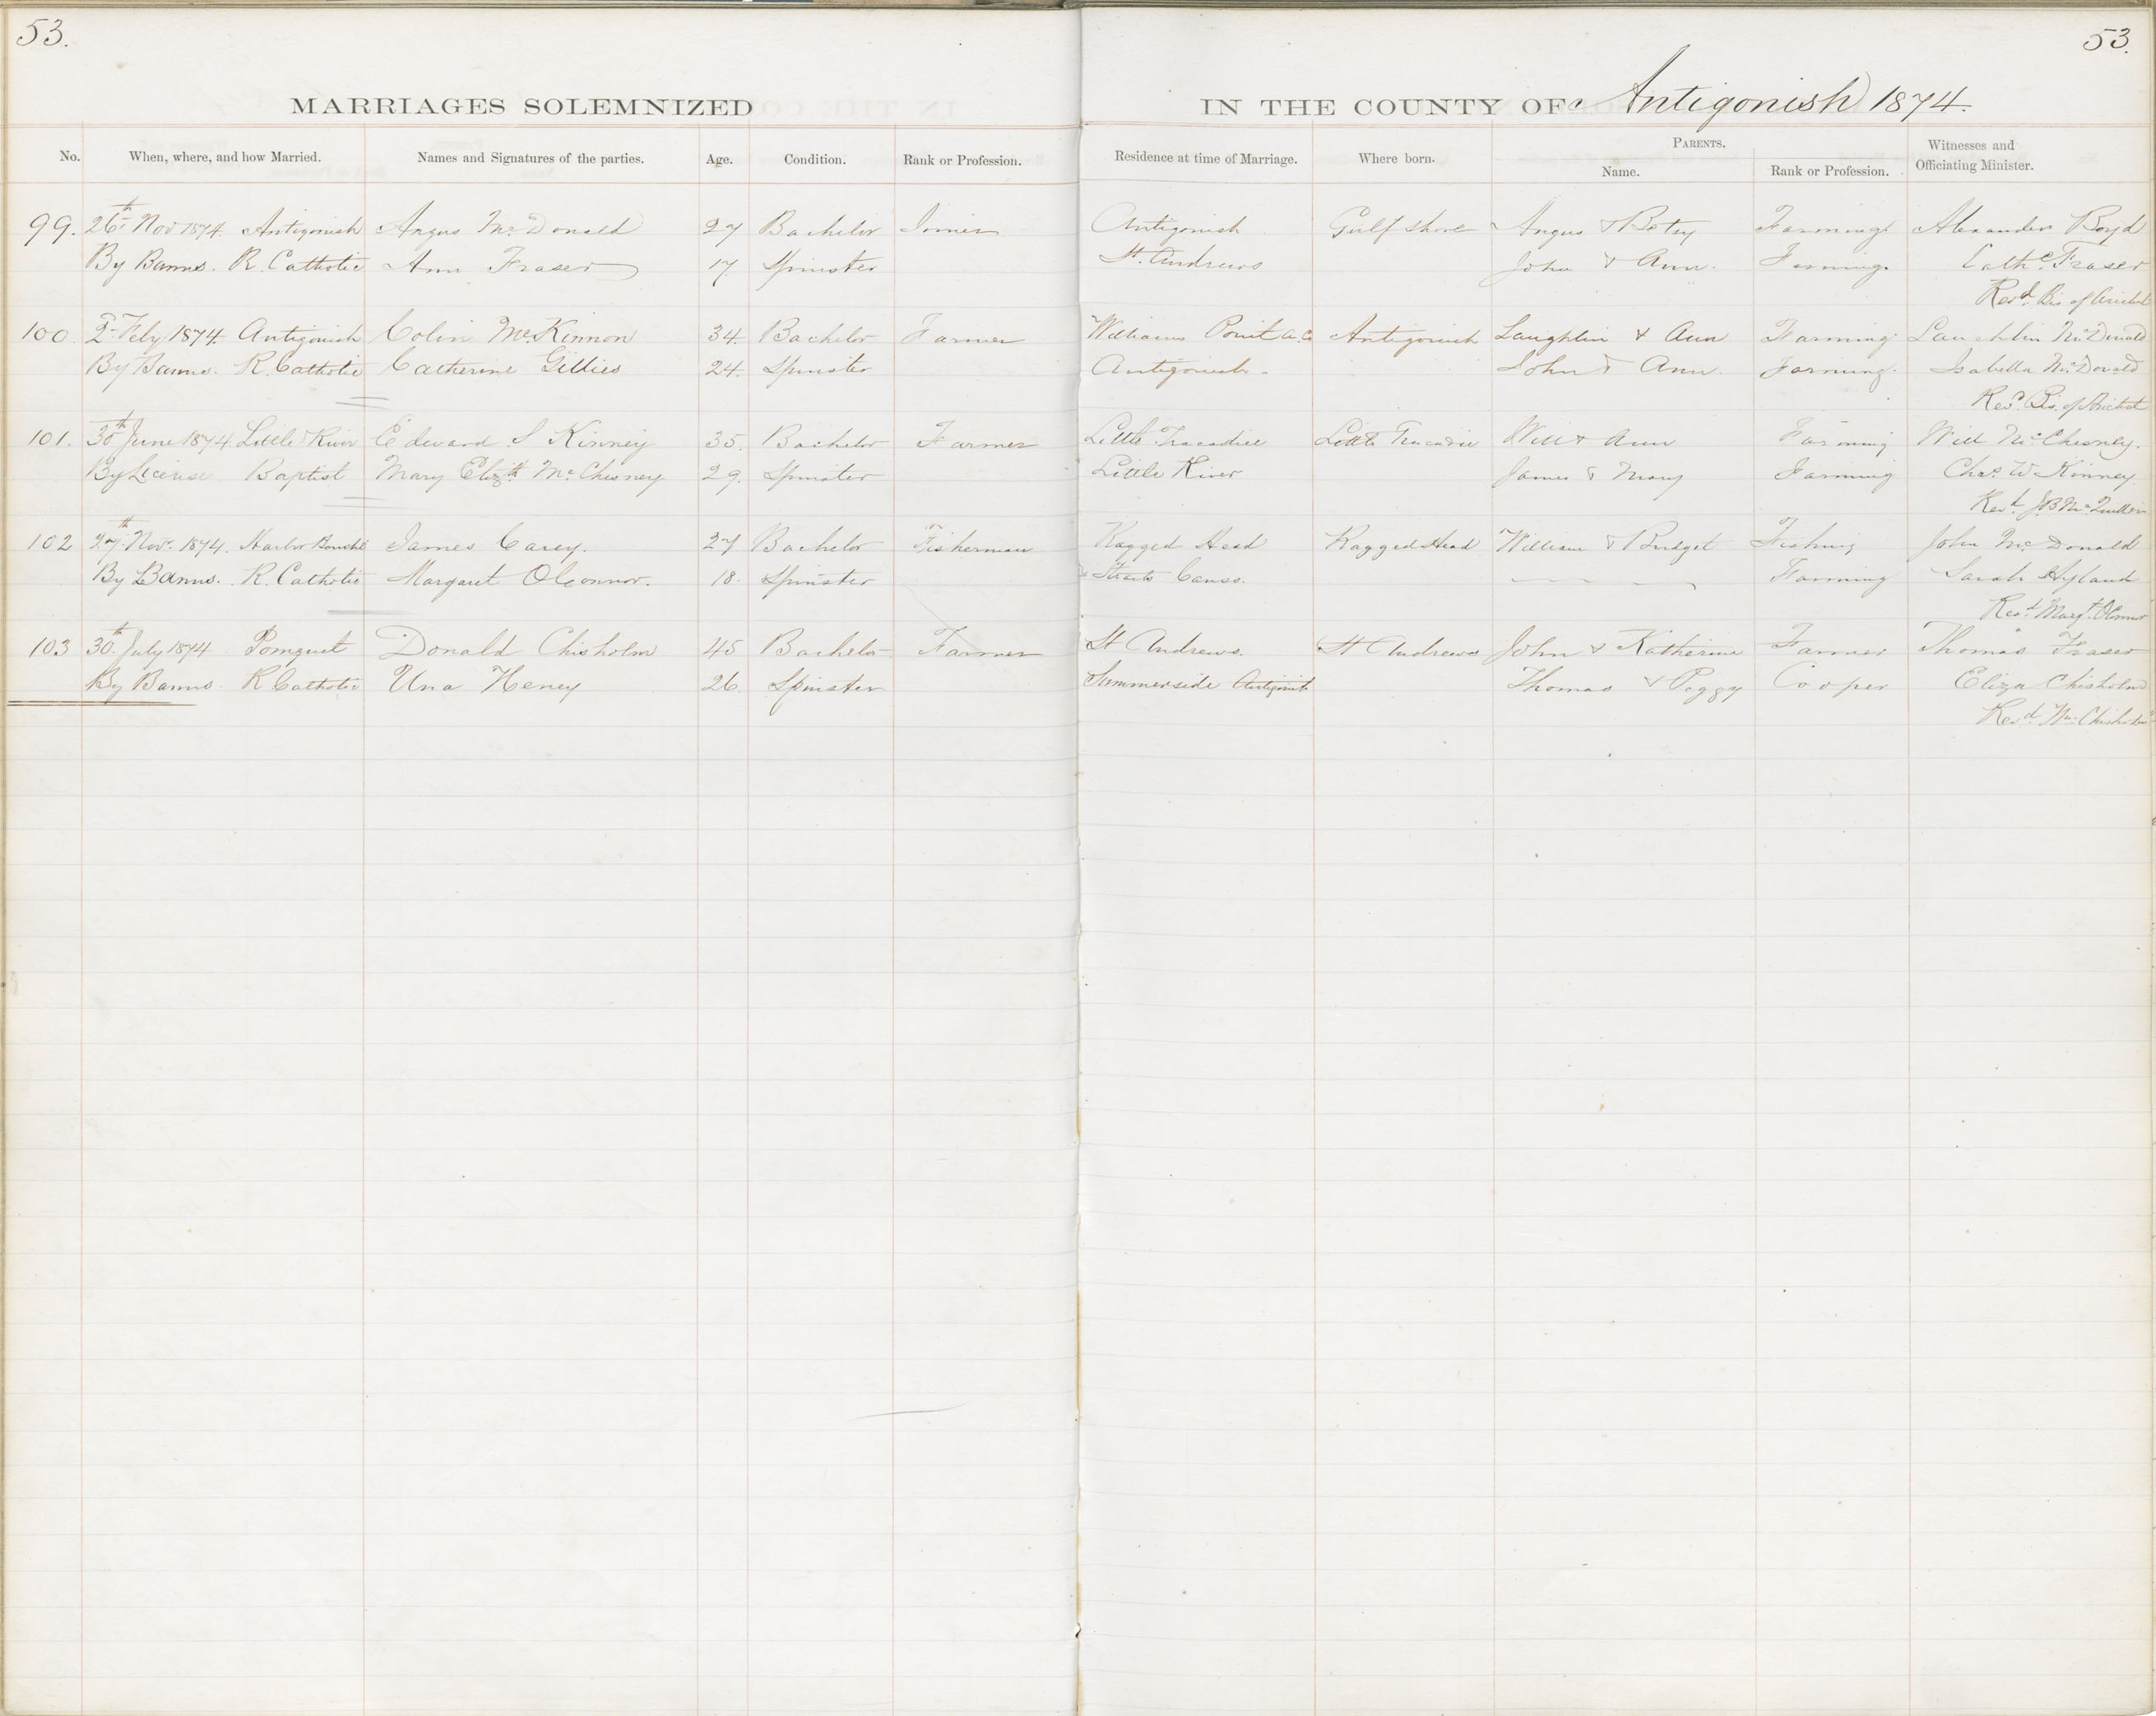 53.
53.
MARRIAGES SOLEMNIZED IN THE COUNTY OF Antigonish 1874.
No. When, where, and how Married. Names and Signatures of the parties. Age. Condition. Rank or Profession. Residence at time of Marriage. Where born. PARENTS. Name. Rank or Profession. Witnesses and Officiating Minister.
99. 26th Nov 1874. Antigonish Angus McDonald 27 Bachelor Joiner Antigonish Gulf Shore Angus & Betsy Farming Alexander Boyd
By Banns. R. Catholic Ann Fraser 17 Spinster St. Andrews John & Ann. Farming. Cathe Fraser
Revd. Bis. of Arichat
100 2d Feby 1874. Antigonish Colin McKinnon 34 Bachelor Farmer Williams Point A. Co Antigonish Laughlin & Ann Farming Lauchlin McDonald
By Banns. R. Catholic Catherine Gillies 24. Spinster Antigonish John & Ann. Farming. Isabella McDonald
Revd. Bis. of Arichat
101. 30th June 1874. Little River Edward S Kinney 35. Bachelor Farmer Little Tracadie Little Tracadie Will & Ann Farming Will McChesney.
By License Baptist Mary Elizth McChesney 29. Spinster Little River James & Mary Farming Chas. W Kinney
Revd. J.B. 
102 27th Nov. 1874. Harbor Bouché James Carey. 27 Bachelor Fisherman Ragged Head Ragged Head William & Bridget Fishing John McDonald
By Banns. R. Catholic Margaret OConnor. 18. Spinster Straits Canso. Farming Sarah Hyland
Revd. Margt. OConnor
103 30th July 1874 Pomquet Donald Chisholm 45 Bachelor Farmer St Andrews. St Andrews John & Katherine Farmer Thomas Fraser
By Banns. R Catholic Una Heney 26 Spinster Summerside Antigonish Thomas & Peggy Cooper Eliza Chisholm
Revd. Wm. Chisholm